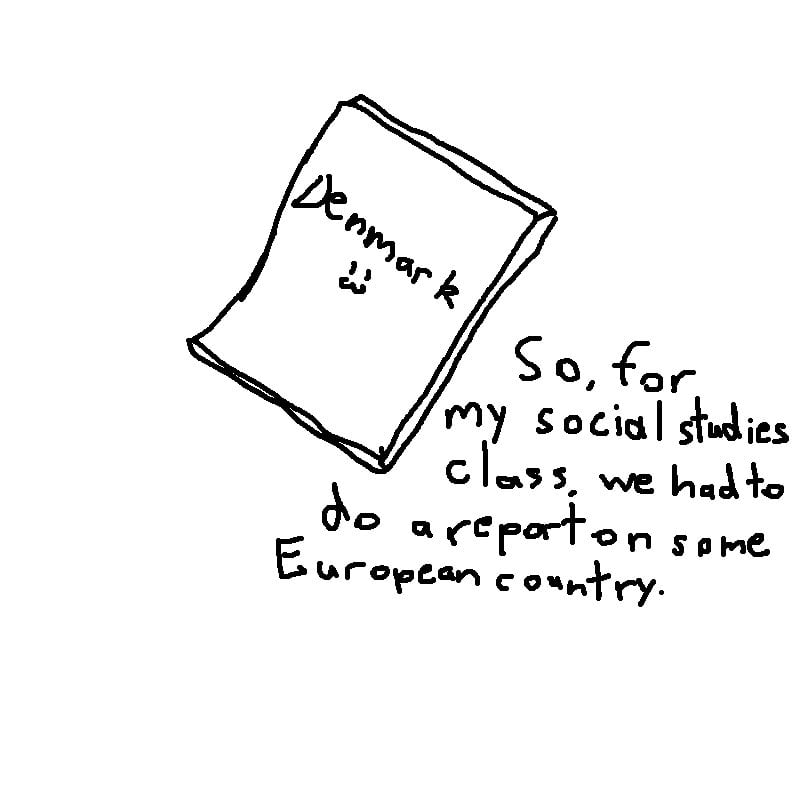 Denmark
So, for
my social studies
class, we had to
do a report on some
European country.